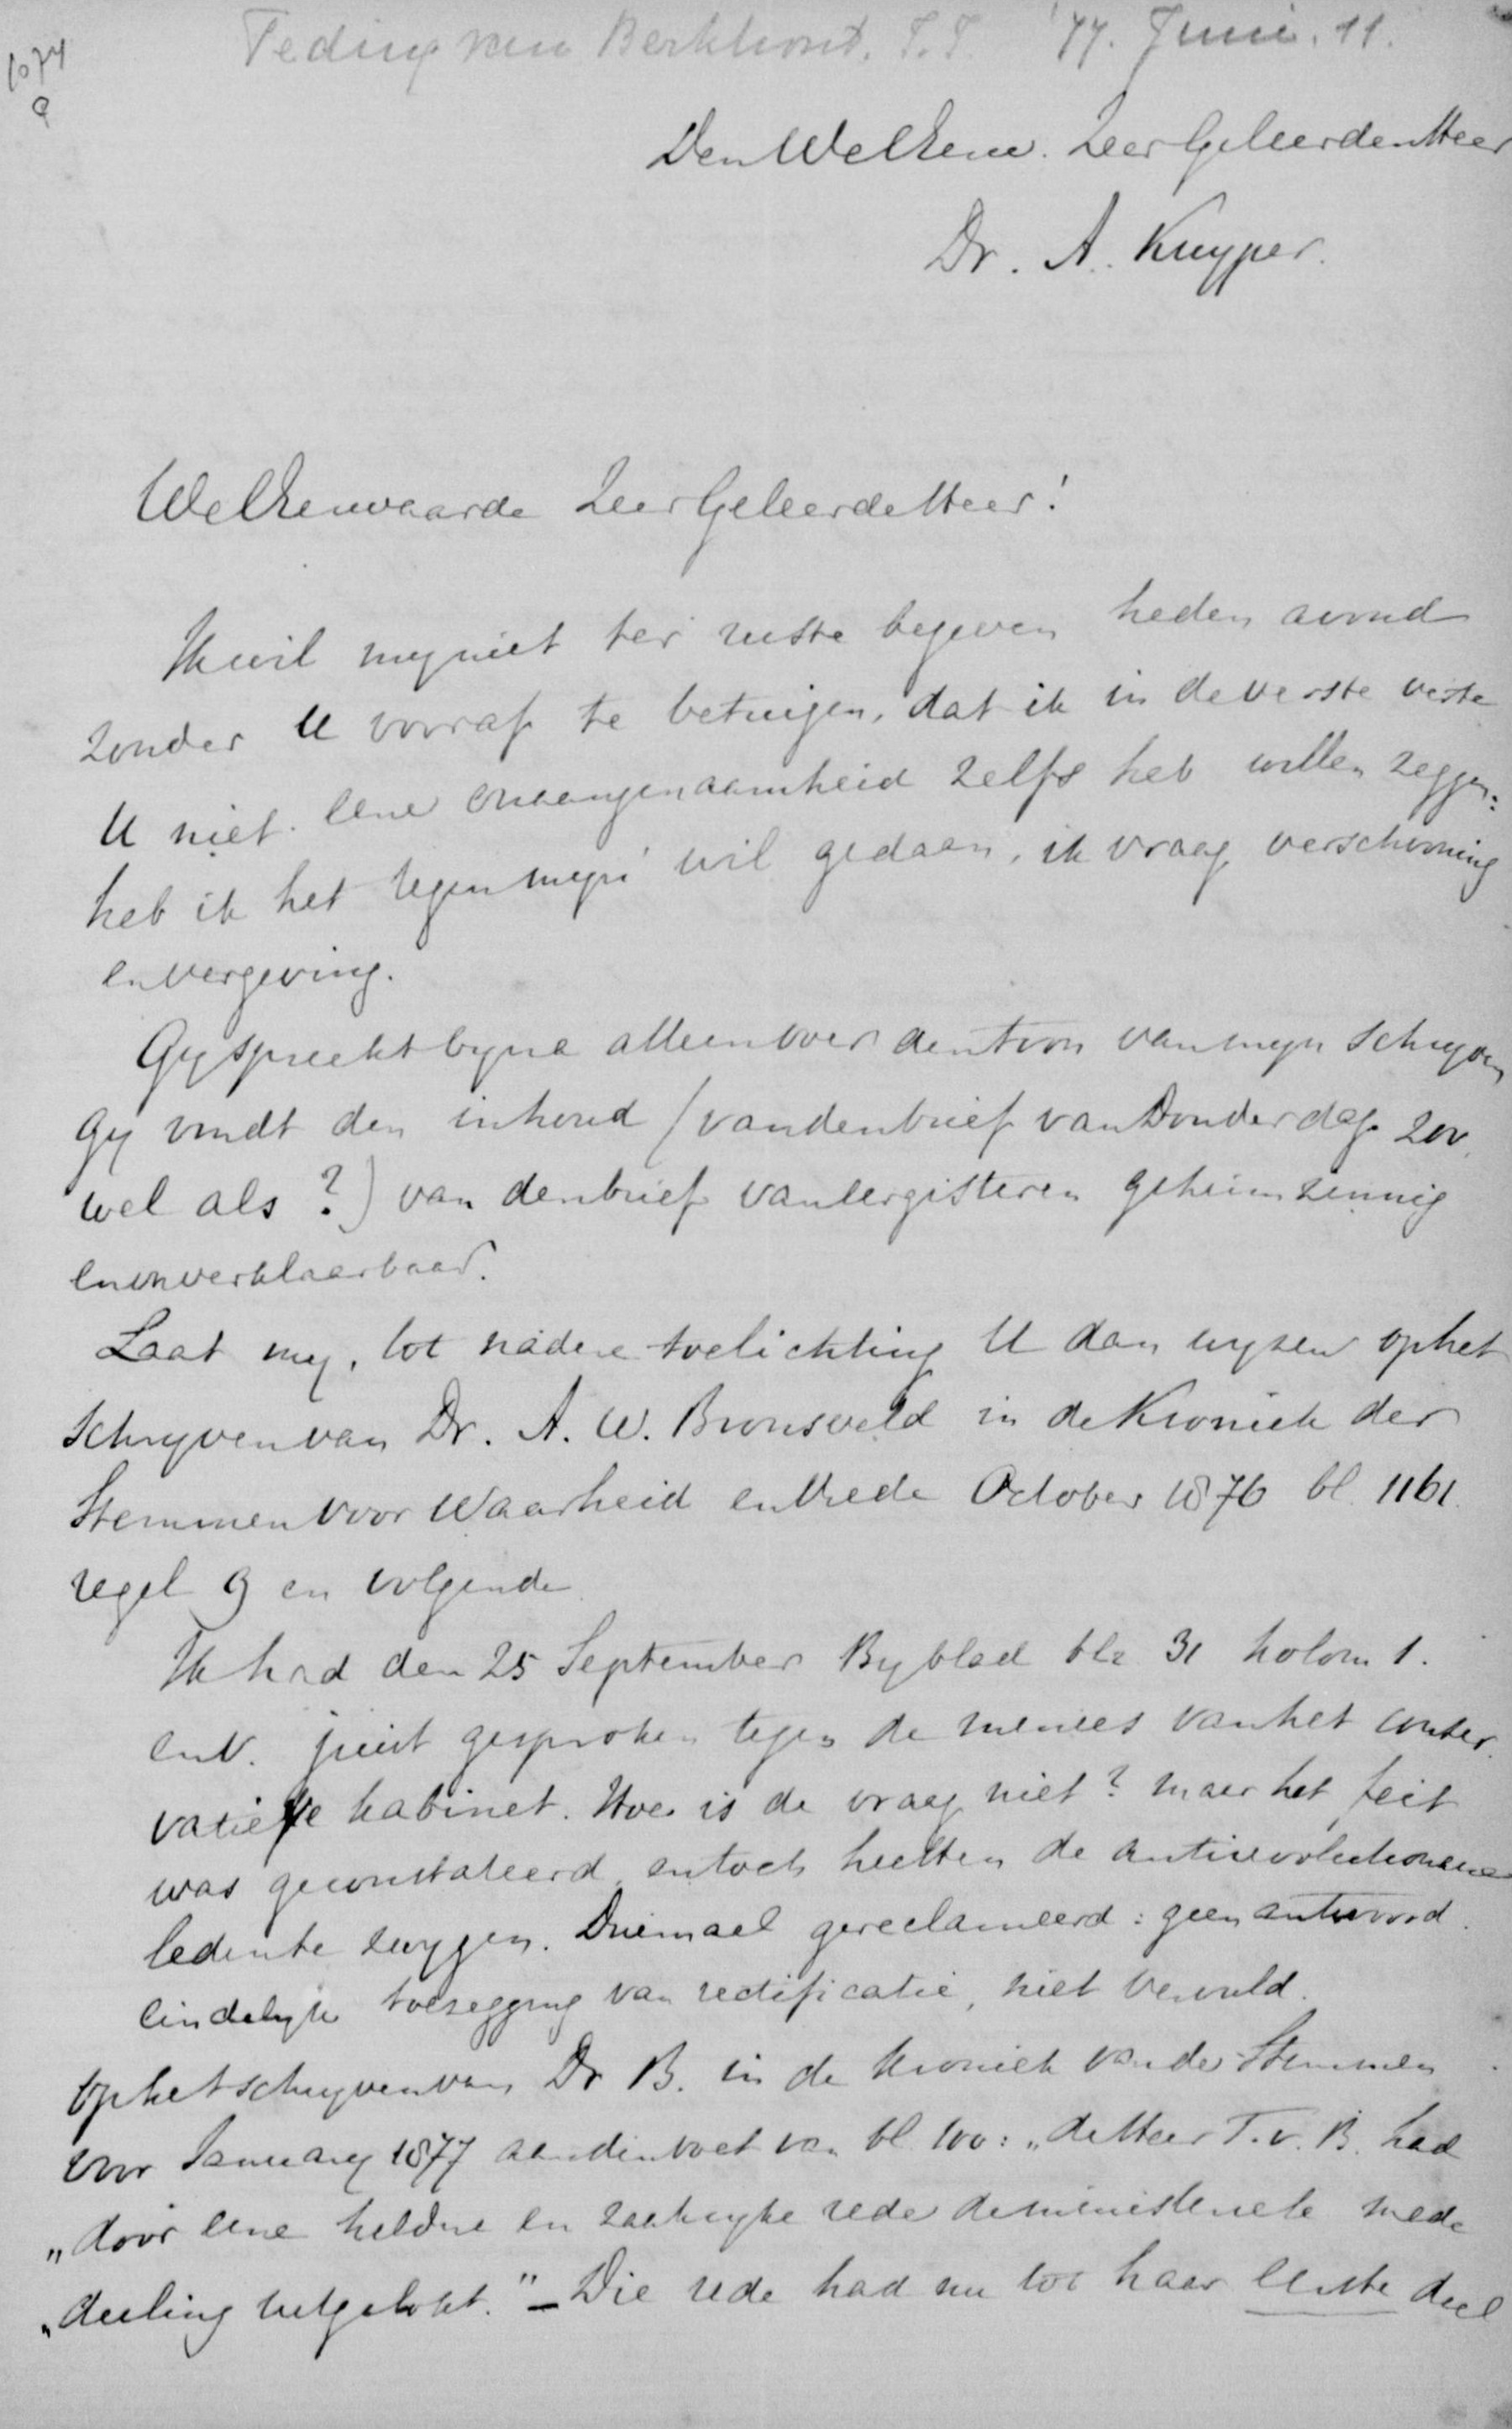 1074
a
Teding van Berkhout. P.J. '77. Juni. 11.
Den WelEerw. ZeerGeleerden Heer
Dr. A. Kuyper.
WelEerwaarde ZeerGeleerde Heer!
Ik wil my niet ter ruste begeven heden avond
zonder U vooraf te betuigen, dat ik in de verste verte
U niet eene onaangenaamheid zelfs heb willen zeggen:
heb ik het tegen mijn wil gedaan, ik vraag verschooning
en vergeving.
Gy spreekt byna alleen over den toon van myn schryven
Gy vindt den inhoud (van den brief van Donderdag zoo
wel als ?) van den brief van eergisteren geheimzinnig
en onverklaarbaar.
Laat my, tot nadere toelichting U dan wyzen op het
schryven van Dr. A. W. Bronsveld in de Kroniek der
Stemmen voor Waarheid en Vrede October 1876 bl. 1161
regel 9 en volgende
Ik had den 25 September Byblad blz 31 kolom 1.
en v. juist gesproken tegen de memees van het conser
vatieve kabinet. Hoe is de vraag niet? maar het feit
was geconstateerd en toch heetten de antirevolutionaire
leden te zwygen. Driemaal gereclameerd: geen antwoord.
Eindelyk toezegging van rectificatie, niet vervuld.
Op het schryven van Dr B. in de Kroniek van de Stemmen
voor January 1877 aan den voet van bl. 100: „de Heer T. v. B. had
„door eene heldere en zaakryke rede de ministerieele mede
„deeling uitgelokt." – Die rede had nu tot haar eerste deel